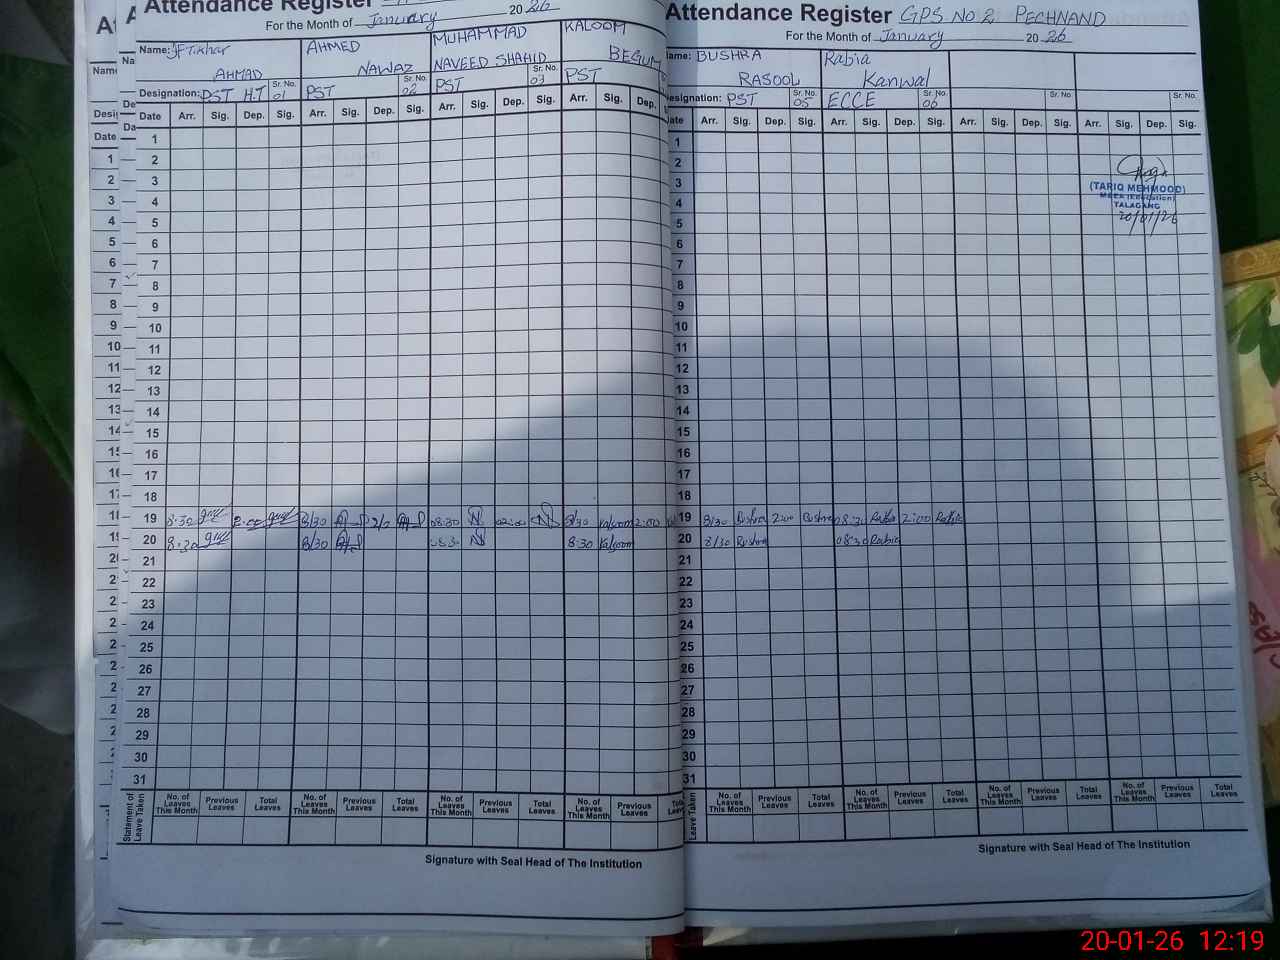 Attendance Register
For the Month of January 2026
Name: Iftikhar AHMAD
AHMED NAWAZ
MUHAMMAD NAVEED SHAHID
KALOOM BEGUM
Designation: PST H.T Sr. No. 01
PST Sr. No. 02
PST Sr. No. 03
PST
Date Arr. Sig. Dep. Sig. Arr. Sig. Dep. Sig. Arr. Sig. Dep. Sig. Arr. Sig. Dep.
1
2
3
4
5
6
7
8
9
10
11
12
13
14
15
16
17
18
19 8:30 2:00 8/30 2/0 08:30 N 02:00 N 8/30 Kalsoom 2:00
20 8:30 8/30 08:30 N 8:30 Kalsoom
21
22
23
24
25
26
27
28
29
30
31
Statement of Leave Taken
No. of Leaves This Month Previous Leaves Total Leaves No. of Leaves This Month Previous Leaves Total Leaves No. of Leaves This Month Previous Leaves Total Leaves No. of Leaves This Month Previous Leaves
Signature with Seal Head of The Institution
Attendance Register GPS No 2 PECHNAND
For the Month of January 2026
Name: BUSHRA RASOOL
Rabia Kanwal
Designation: PST Sr. No. 05
ECCE Sr. No. 06
Sr. No.
Sr. No.
Date Arr. Sig. Dep. Sig. Arr. Sig. Dep. Sig. Arr. Sig. Dep. Sig. Arr. Sig. Dep. Sig.
1
2
3
4
5
6
7
8
9
10
11
12
13
14
15
16
17
18
19 8/30 Bushra 2:00 Bushra 08:30 Rabia 2:00 Rabia
20 8/30 Bushra 08:30 Rabia
21
22
23
24
25
26
27
28
29
30
31
(TARIQ MEHMOOD)
(Education)
TALAGANG
20/01/26
Leave Taken
No. of Leaves This Month Previous Leaves Total Leaves No. of Leaves This Month Previous Leaves Total Leaves No. of Leaves This Month Previous Leaves Total Leaves No. of Leaves This Month Previous Leaves Total Leaves
Signature with Seal Head of The Institution
20-01-26 12:19